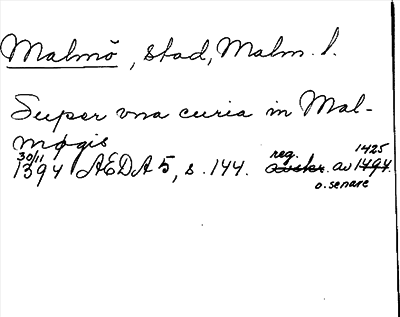 Malmö, stad, Malm. l.
Super vna curia in Mal-
møgis
30/11 1394 AEDA 5, s. 144. reg. av 1425
o. senare